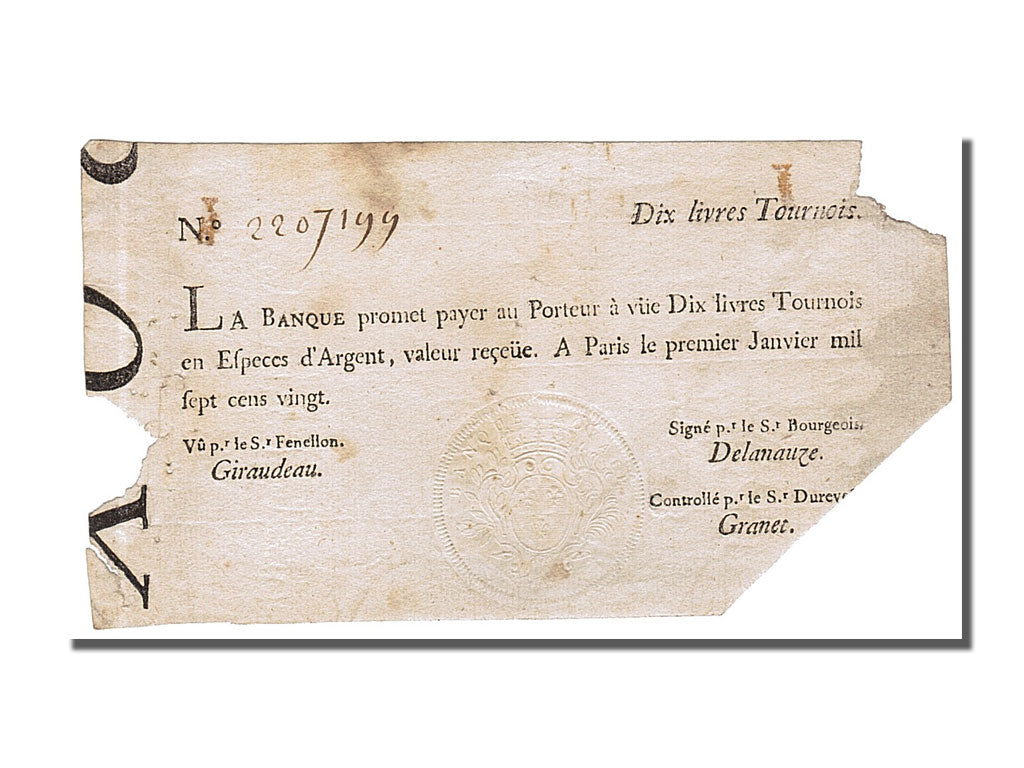 N.º 2207199
Dix livres Tournois.
LA BANQUE promet payer au Porteur à vüe Dix livres Tournois
en Eſpeces d'Argent, valeur reçeüe. A Paris le premier Janvier mil
ſept cens vingt.
Vû p.r le S.r Fenellon.
Giraudeau.
Signé p.r le S.r Bourgeois.
Delanauze.
Controllé p.r le S.r
Granet.